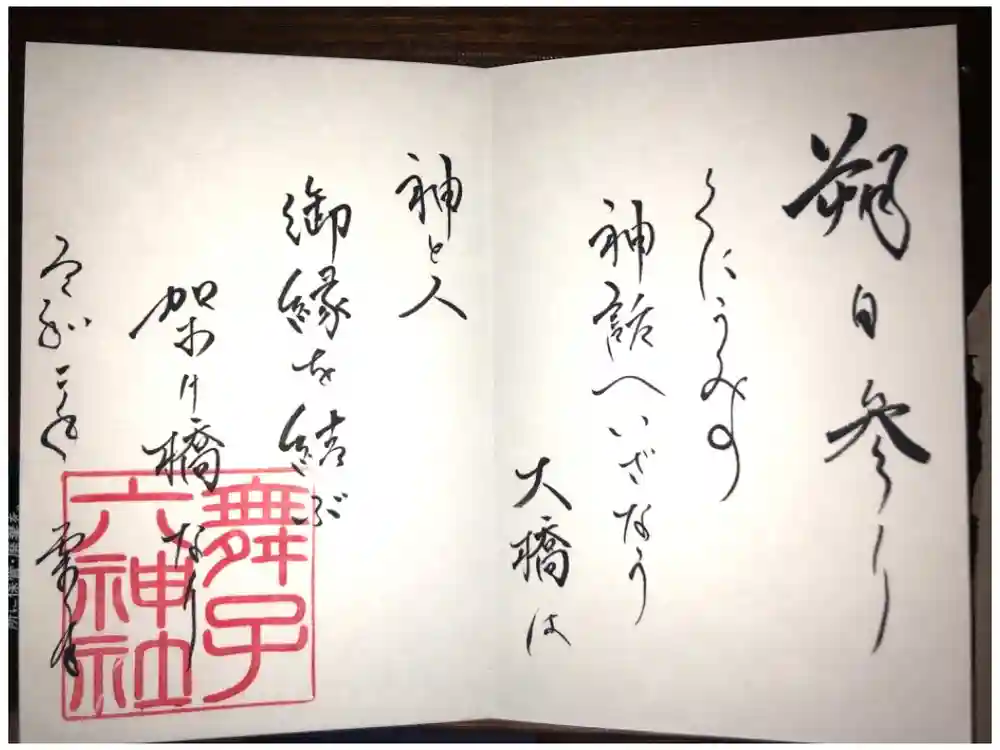 朔日参り
くにうみの
神話へいざなう
大橋は
神と人
御縁を結ぶ
架け橋なり
令和二年 霜月
舞子
六神社